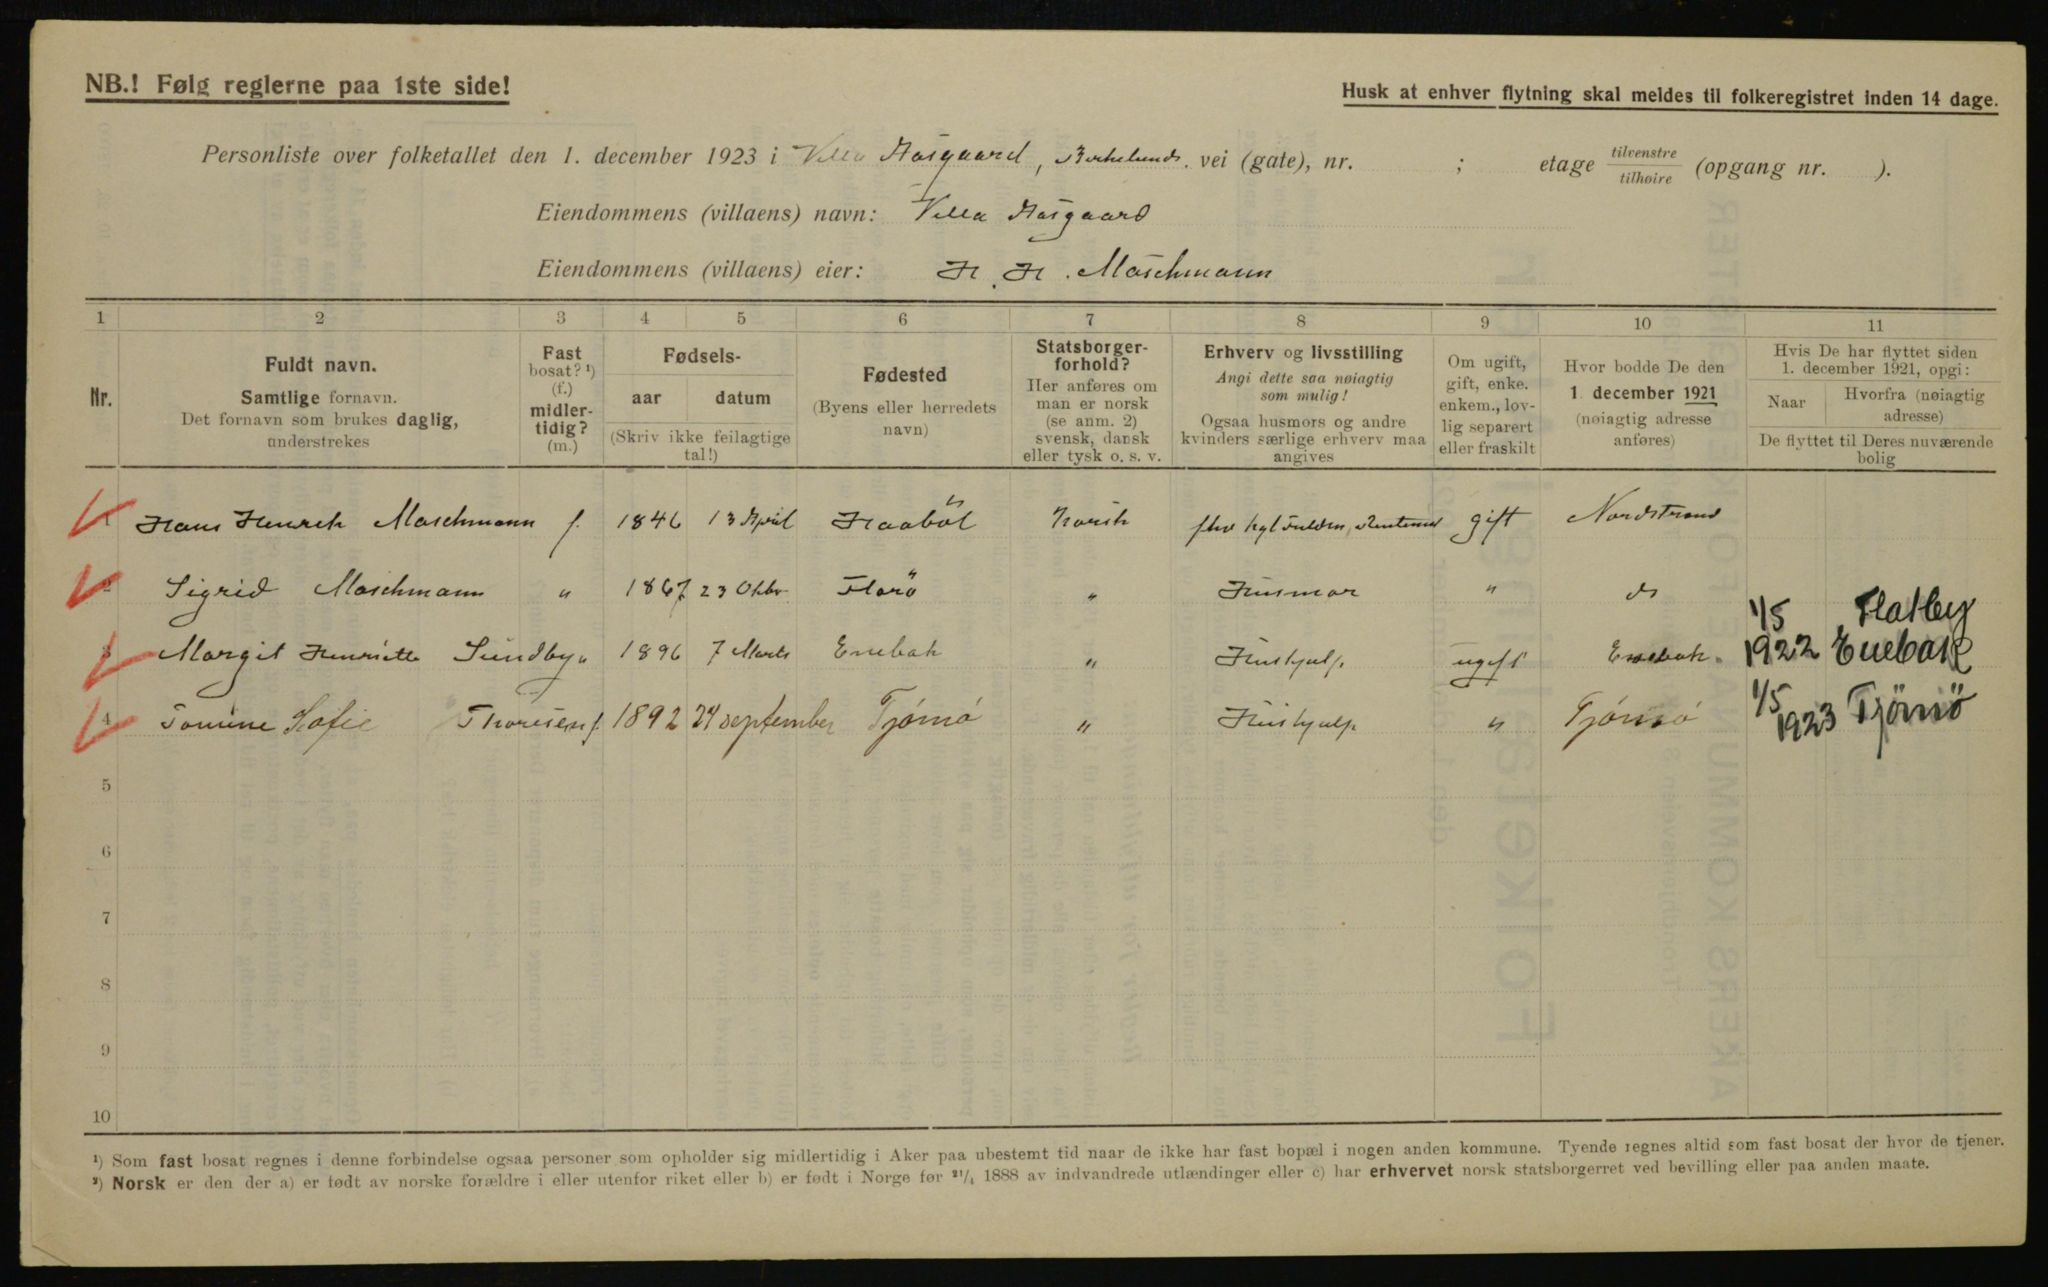 NB.! Følg reglerne paa 1ste side!
Husk at enhver flytning skal meldes til folkeregistret inden 14 dage.
Personliste over folketallet den 1. december 1923 i Villa Aasgaard, Birkelunds vei (gate), nr. ; etage tilvenstre tilhøire (opgang nr. ).
Eiendommens (villaens) navn: Villa Aasgaard
Eiendommens (villaens) eier: H. H. Maschmann
1 2 3 4 5 6 7 8 9 10 11
Nr.
Fuldt navn.
Samtlige fornavn.
Det fornavn som brukes daglig,
understrekes
Fast
bosat? ¹)
(f.)
midler-
tidig?
(m.)
Fødsels-
aar datum
(Skriv ikke feilagtige
tal!)
Fødested
(Byens eller herredets
navn)
Statsborger-
forhold?
Her anføres om
man er norsk
(se anm. 2)
svensk, dansk
eller tysk o. s. v.
Erhverv og livsstilling
Angi dette saa nøiagtig
som mulig!
Ogsaa husmors og andre
kvinders særlige erhverv maa
angives
Om ugift,
gift, enke.
enkem., lov-
lig separert
eller fraskilt
Hvor bodde De den
1. december 1921
(nøiagtig adresse
anføres)
Hvis De har flyttet siden
1. december 1921, opgi:
Naar
Hvorfra (nøiagtig
adresse)
De flyttet til Deres nuværende
bolig
1 Hans Henrik Maschmann f. 1846 13 April Haabøl Norsk gift Nordstrand
2 Sigrid Maschmann " 1867 23 Oktbr Florö " Husmor " do
3 Margit Henriette Sundby " 1896 7 Marts Enebak " Hushjælp ugift Enebak 1/5 1922 Flatby Enebak
4 Tomine Sofie Thoresen f. 1892 24 september Tjömö " Hushjælp " Tjömö 1/5 1923 Tjömö
5
6
7
8
9
10
¹) Som fast bosat regnes i denne forbindelse ogsaa personer som opholder sig midlertidig i Aker paa ubestemt tid naar de ikke har fast bopæl i nogen anden kommune. Tyende regnes altid som fast bosat der hvor de tjener.
²) Norsk er den der a) er født av norske forældre i eller utenfor riket eller b) er født i Norge før ²¹/₄ 1888 av indvandrede utlændinger eller c) har erhvervet norsk statsborgerret ved bevilling eller paa anden maate.